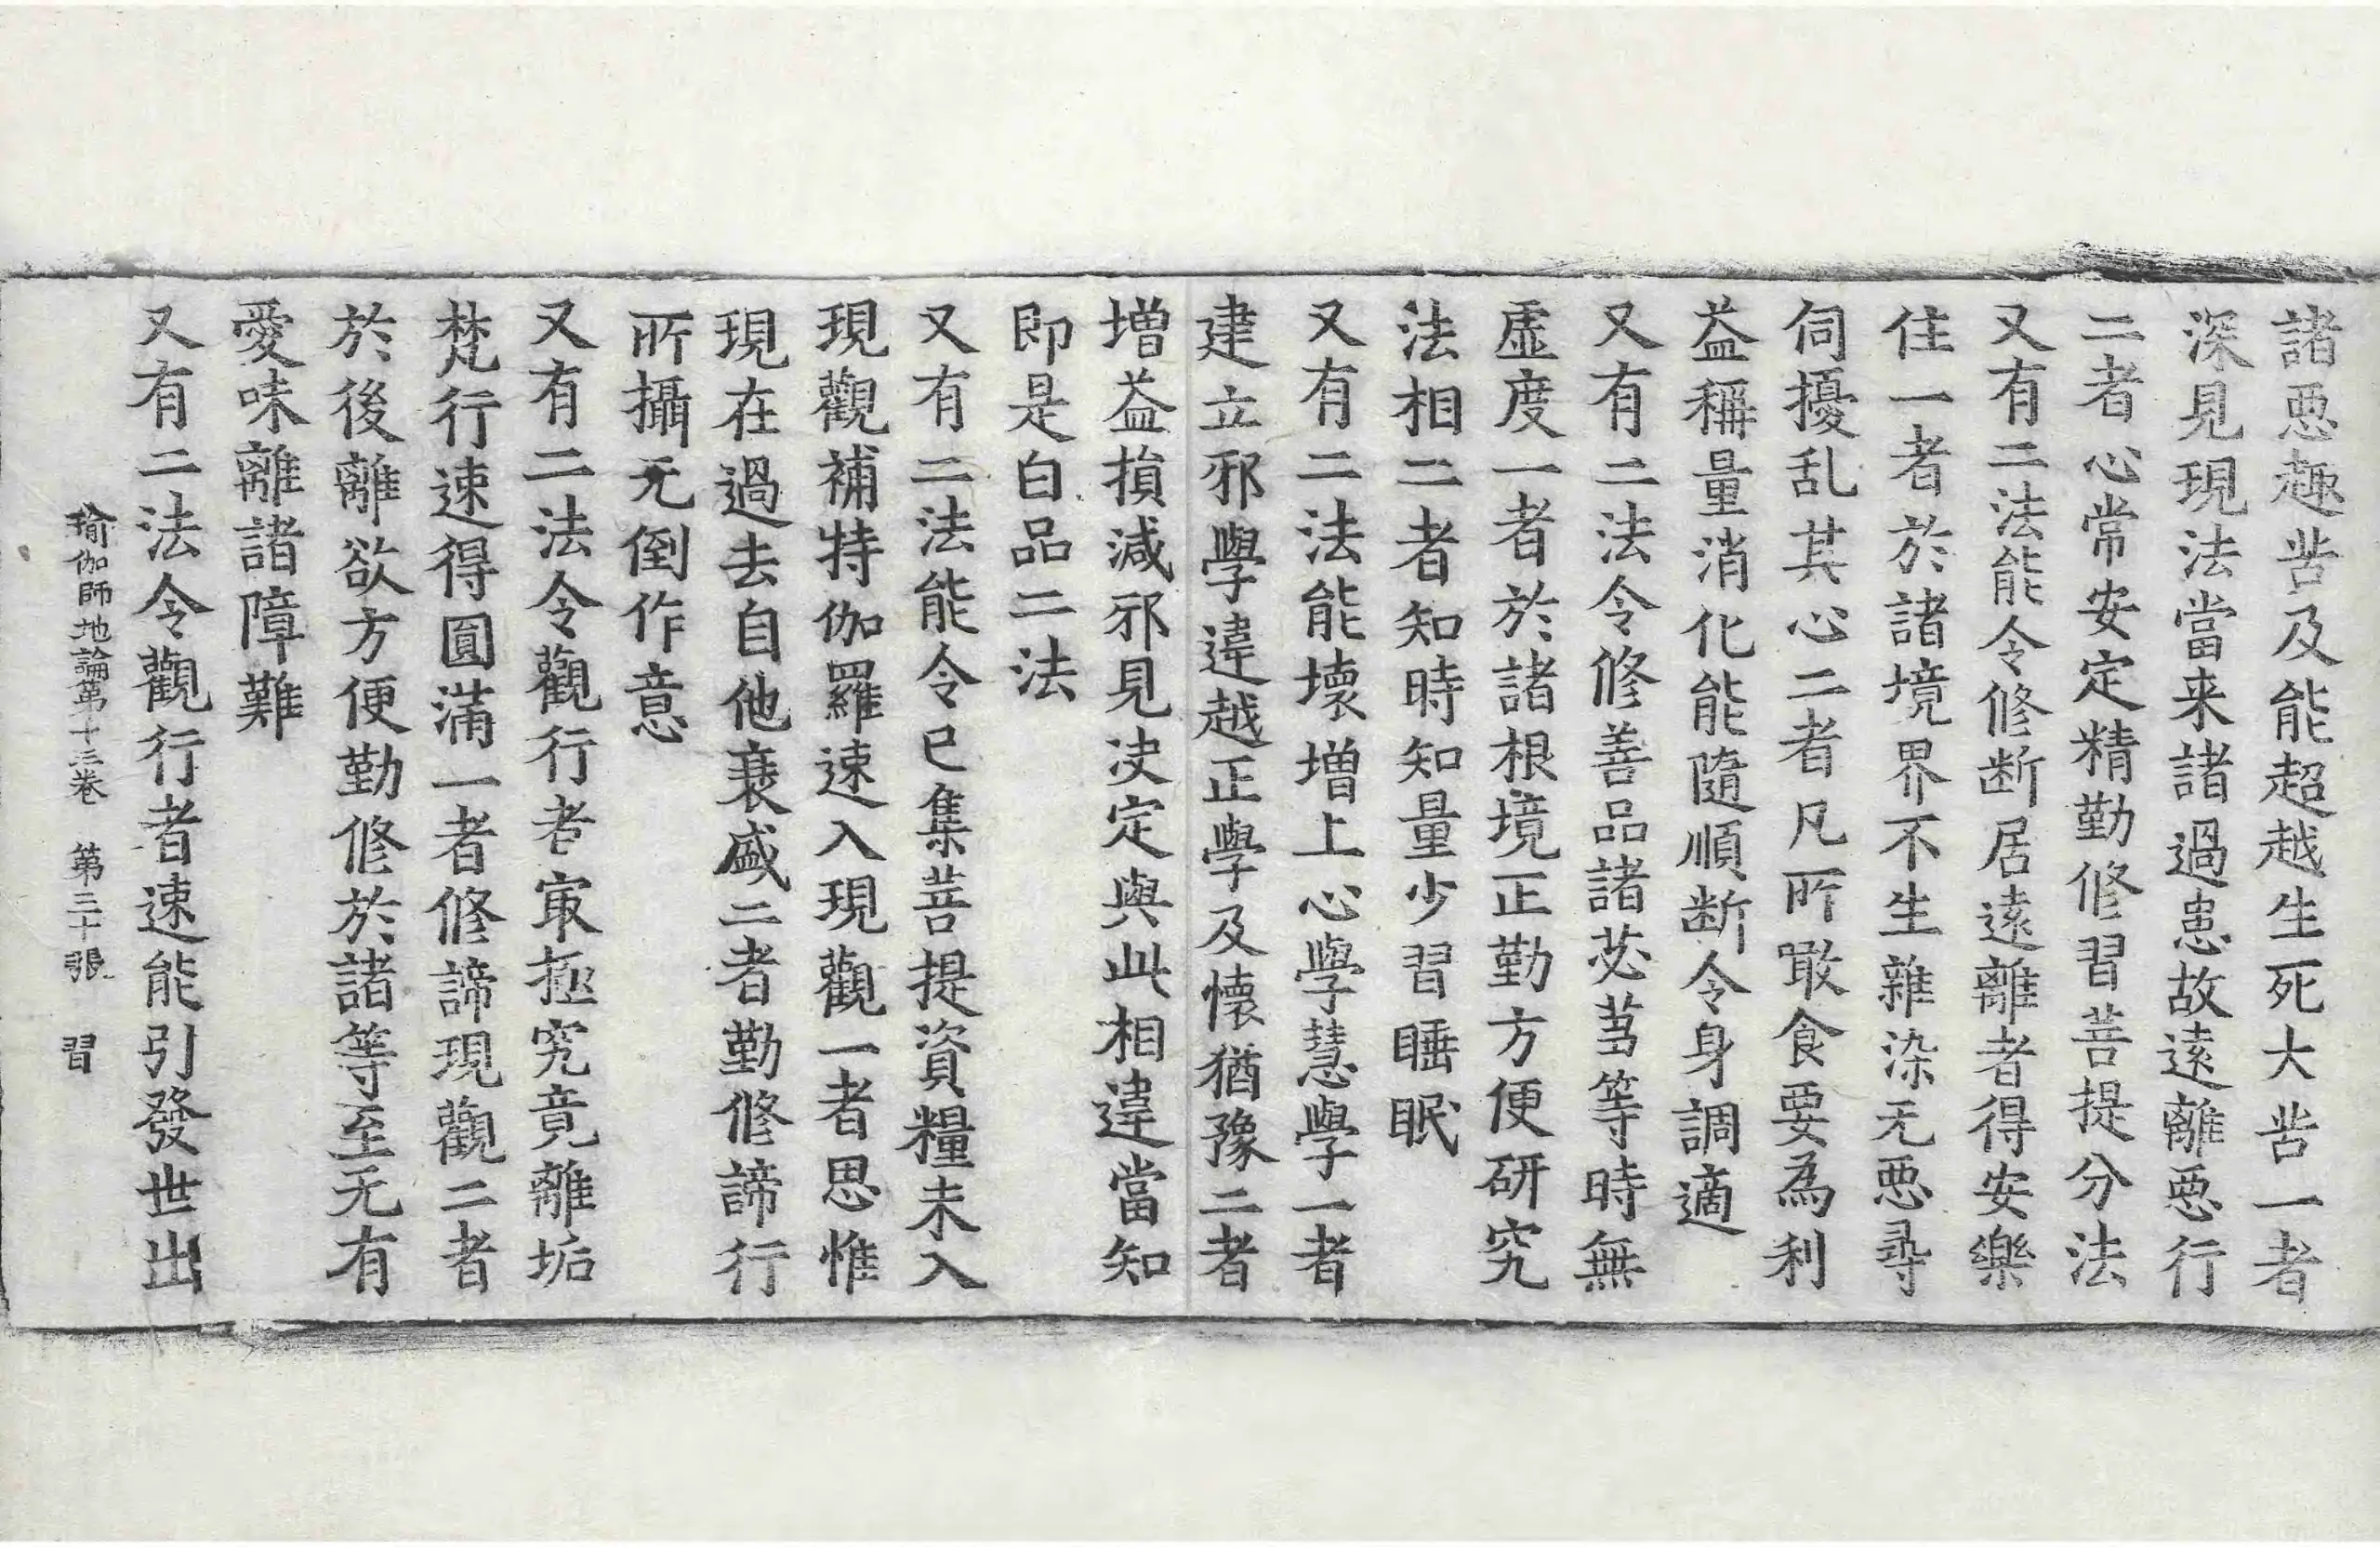 諸惡趣苦及能超越生死大苦一者
深見現法當来諸過患故遠離惡行
二者心常安定精勤修習菩提分法
又有二法能令修断居遠離者得安樂
住一者於諸境界不生雜染无惡尋
伺擾乱其心二者凡所噉食要為利
益稱量消化能隨順断令身調適
又有二法令修善品諸苾芻等時無
虛度一者於諸根境正勤方便研究
法相二者知時知量少習睡眠
又有二法能壞增上心學慧學一者
建立邪學違越正學及懷猶豫二者
增益損減邪見决定與此相違當知
即是白品二法
又有二法能令已集菩提資糧未入
現觀補特伽羅速入現觀一者思惟
現在過去自他衰盛二者勤修諦行
所攝无倒作意
又有二法令觀行者㝡極究竟離垢
梵行速得圓滿一者修諦現觀二者
於後離欲方便勤修於諸等至无有
愛味離諸障難
又有二法令觀行者速能引發世出
瑜伽師地論第十三卷　第三十張　習